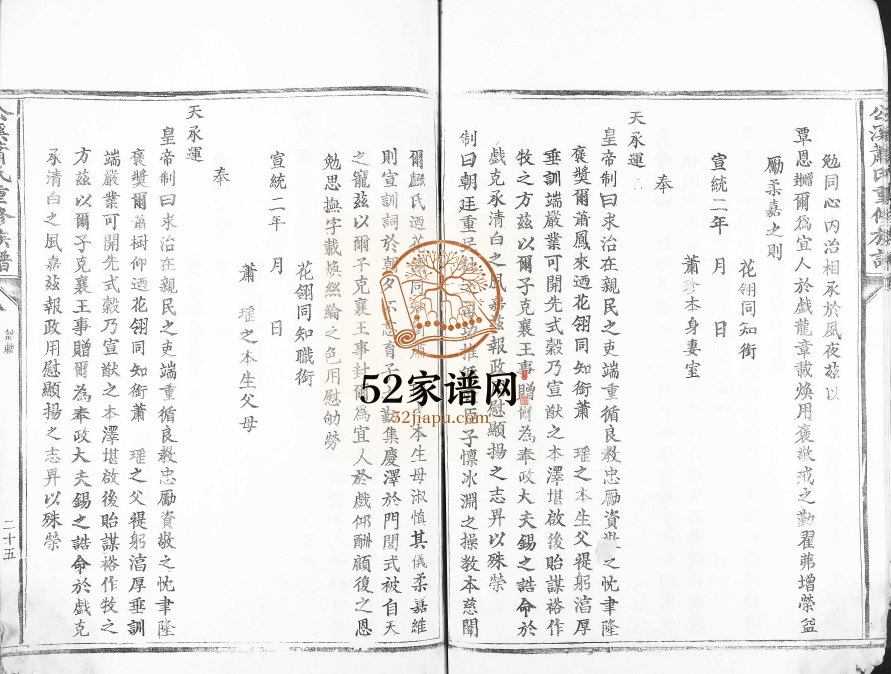 公溪蕭氏重修族譜
勉同心內治相承於夙夜茲以
覃恩貤爾爲宜人於戲龍章載煥用褒敬戒之勤翟茀增榮益
勵柔嘉之則
花翎同知銜
宣統二年 月 日
蕭珍本身妻室
奉
天承運
皇帝制曰求治在親民之吏端重循良教忠勵資敬之忱聿隆
褒獎爾蕭鳳來迺花翎同知銜蕭 瑾之本生父褆躬淳厚
垂訓端嚴業可開先式穀乃宣猷之本澤堪啟後貽謀裕作
牧之方茲以爾子克襄王事贈爾為奉政大夫錫之誥命於
戲克承清白之風嘉茲報政 慰顯揚之志昇以殊榮
制曰朝廷重民 子懍冰淵之操教本慈闈
爾 氏迺花 同 本生母淑慎其儀柔嘉維
則宣訓詞於朝夕不忘育子 勤集慶澤於門閭式被自天
之寵茲以爾子克襄王事封爾爲宜人於戲仰酬顧復之恩
勉思撫字載煥絲綸之色用慰劬勞
花翎同知職銜
宣統二年 月 日
蕭 瑾之本生父母
奉
天承運
皇帝制曰求治在親民之吏端重循良教忠勵資敬之忱聿隆
褒獎爾蕭樹仰迺花翎同知銜蕭 瑾之父褆躬淳厚垂訓
端嚴業可開先式穀乃宣猷之本澤堪啟後貽謀裕作牧之
方茲以爾子克襄王事贈爾為奉政大夫錫之誥命於戲克
承清白之風嘉茲報政用慰顯揚之志昇以殊榮
公溪蕭氏重修族譜
誥勅
二十五
52家谱网
52jiapu.com